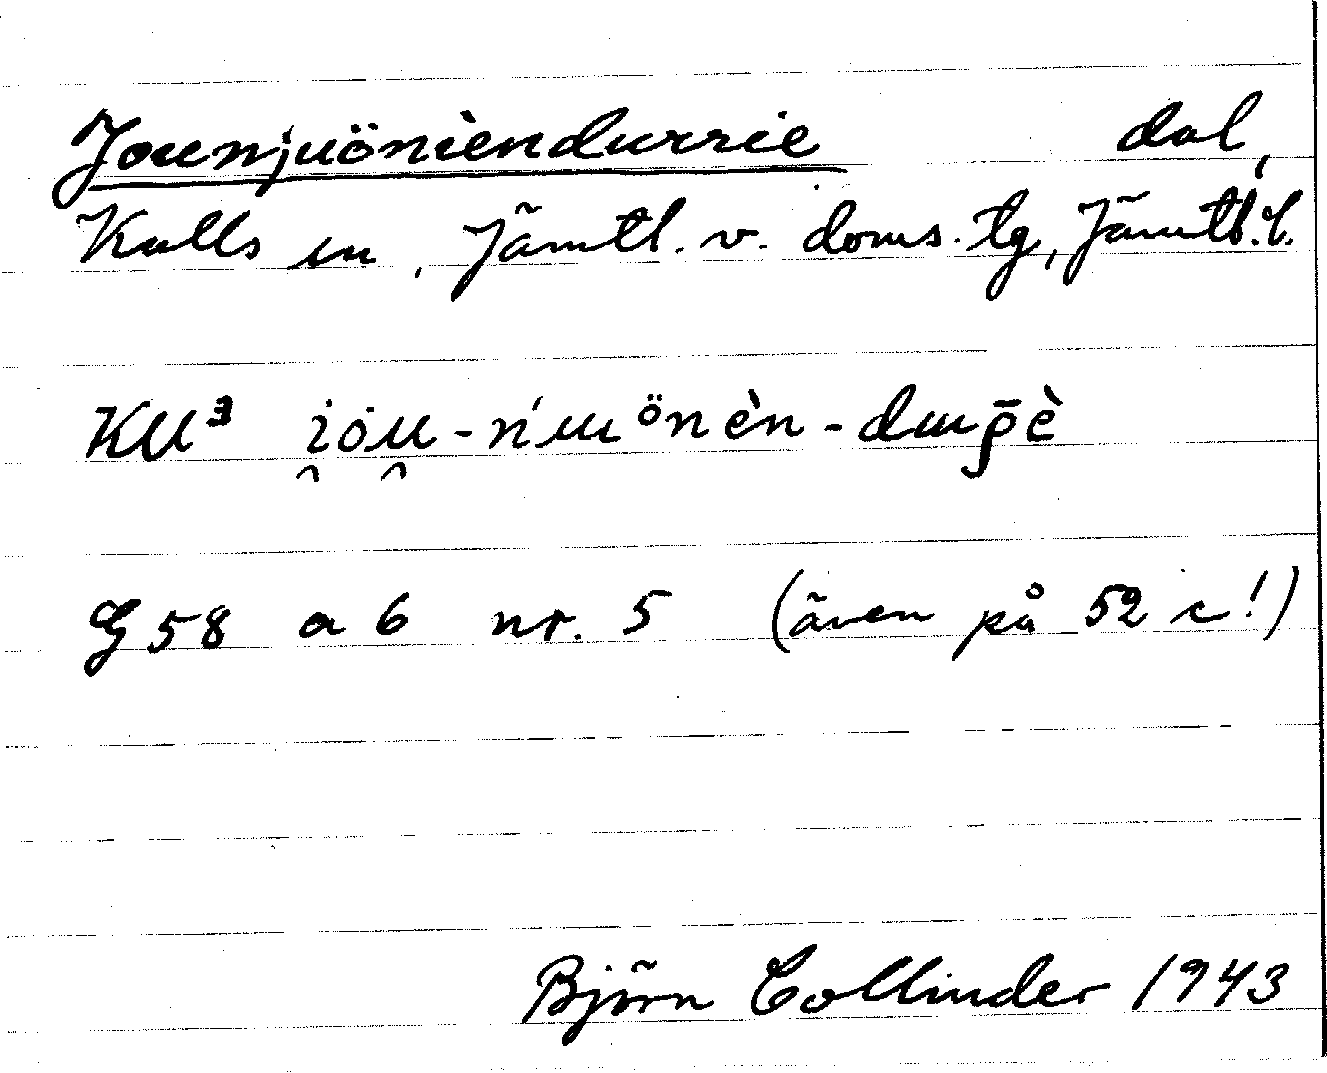 Jounjuöniendurrie dal,
Kalls sn, Jämtl. v. doms. tg, Jämtl. l.
KU³
G 58 a 6 nr. 5 (även på 52 c!)
Björn Collinder 1943